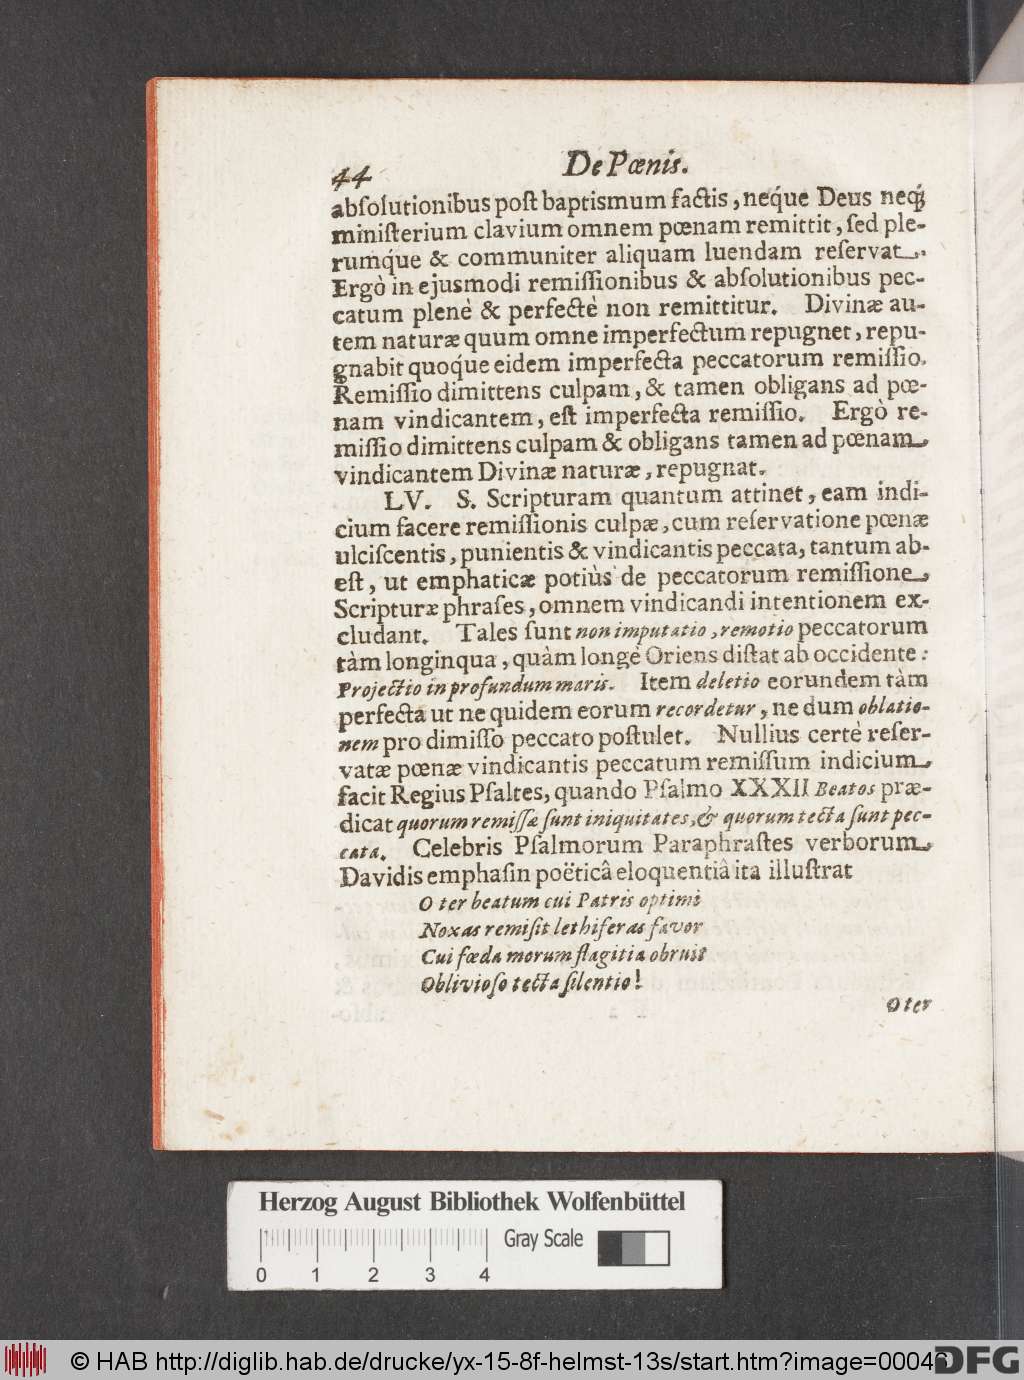 44 De Pœnis.
abſolutionibus poſt baptismum factis, neq́ue Deus neq́;
miniſterium clavium omnem pœnam remittit, ſed ple-
rumq́ue & communiter aliquam luendam reſervat.
Ergò in ejusmodi remiſſionibus & abſolutionibus pec-
catum plenè & perfectè non remittitur. Divinæ au-
tem naturæ quum omne imperfectum repugnet, repu-
gnabit quoq́ue eidem imperfecta peccatorum remiſſio.
Remiſſio dimittens culpam, & tamen obligans ad pœ-
nam vindicantem, eſt imperfecta remiſſio. Ergò re-
miſſio dimittens culpam & obligans tamen ad pœnam
vindicantem Divinæ naturæ, repugnat.
LV. S. Scripturam quantum attinet, eam indi-
cium facere remiſſionis culpæ, cum reſervatione pœnæ
ulciſcentis, punientis & vindicantis peccata, tantum ab-
eſt, ut emphaticæ potiùs de peccatorum remiſſione,
Scripturæ phraſes, omnem vindicandi intentionem ex-
cludant. Tales ſunt non imputatio, remotio peccatorum
tàm longinqua, quàm longè Oriens diſtat ab occidente:
Projectio in profundum maris. Item deletio eorundem tàm
perfecta ut ne quidem eorum recordetur, ne dum oblatio-
nem pro dimiſſo peccato poſtulet. Nullius certè reſer-
vatæ pœnæ vindicantis peccatum remiſſum indicium
facit Regius Pſaltes, quando Pſalmo XXXII Beatos præ-
dicat quorum remiſſæ ſunt iniquitates, & quorum tecta ſunt pec-
cata. Celebris Pſalmorum Paraphraſtes verborum
Davidis emphaſin poëticâ eloquentiâ ita illuſtrat
O ter beatum cui Patris optimi
Noxas remiſit lethiferas favor
Cui fœda morum flagitia obruit
Oblivioſo tecta ſilentio!
O ter
Herzog August Bibliothek Wolfenbüttel
Gray Scale
0 1 2 3 4
© HAB http://diglib.hab.de/drucke/yx-15-8f-helmst-13s/start.htm?image=00046
DFG